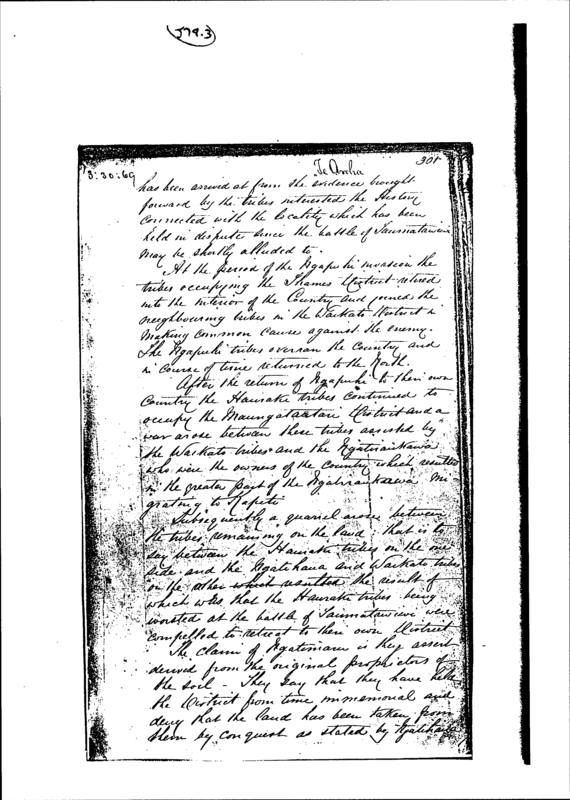 379.3
Te Aroha
301
3:30:69
has been arrived at from the evidence brought
forward by the tribes interested the History
connected with the locality which has been
held in dispute since the battle of Taumatawiwi
may be shortly alluded to.
At the period of the Ngapuhi invasion the
tribes occupying the Thames District retired
into the interior of the Country and joined the
neighbouring tribes in the Waikato District in
making common cause against the enemy.
The Ngapuhi tribes overran the Country and
in course of time returned to the North.
After the return of Ngapuhi to their own
Country the Hauraki tribes continued to
occupy the Maungatautari District and a
war arose between these tribes assisted by
the Waikato tribes and the Ngatiraukawa
who were the owners of the Country which resulted
in the greater part of the Ngatiraukawa mi
grating to Kapiti
Subsequently a quarrel arose between
the tribes remaining on the land that is to
say between the Hauraki tribes on the one
side and the Ngatihaua and Waikato tribes
on the other which resulted the result of
which was that the Hauraki tribes being
worsted at the battle of Taumatawiwi were
compelled to retreat to their own District
The claim of Ngatimaru is they assert
derived from the original proprietors of
the soil - They say that they have held
the District from time immemorial and
deny that the land has been taken from
them by conquest as stated by Ngatihaua